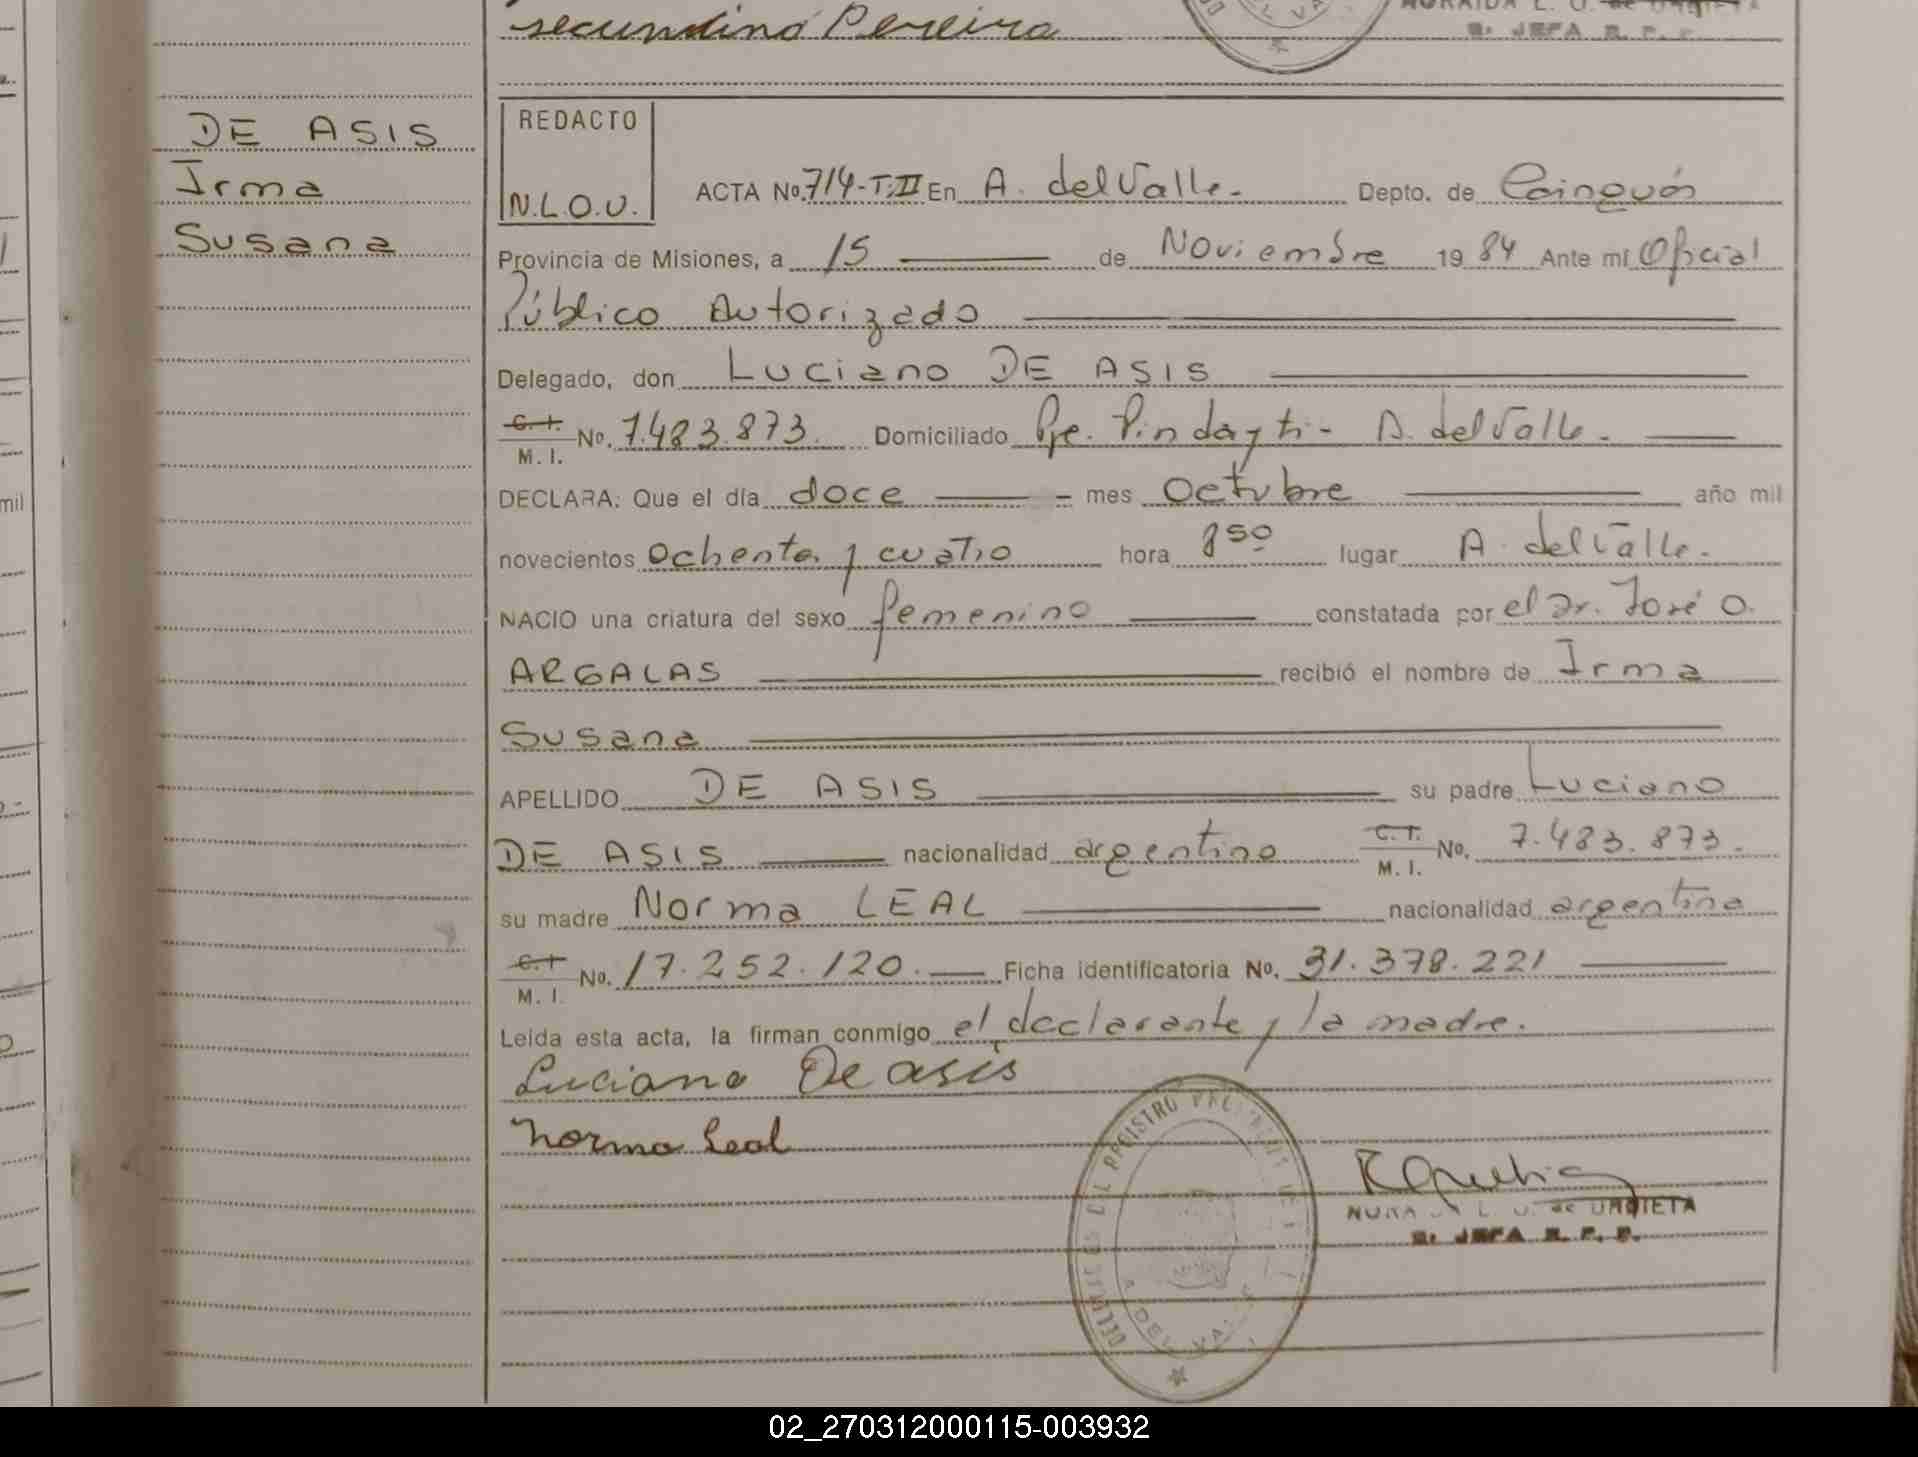 secundino Pereira
DE ASIS
Irma
Susana
REDACTO
N.L.O.U.
ACTA No. 714-T:II En A. del Valle.- Depto. de Cainguás
Provincia de Misiones, a 15 de Noviembre 1984 Ante mí Oficial
Público Autorizado
Delegado, don Luciano DE ASIS
C.I. M.I. No. 7.483.873. Domiciliado Pje. Pindayti- A. del Valle.
DECLARA: Que el día doce mes Octubre año mil
novecientos ochenta y cuatro hora 850 lugar A. del Valle.
NACIO una criatura del sexo femenino constatada por el Dr. José O.
ARGALAS recibió el nombre de Irma
Susana
APELLIDO DE ASIS su padre Luciano
DE ASIS nacionalidad argentino C.I. M.I. No. 7.483.873.
su madre Norma LEAL nacionalidad argentina
C.I. M.I. No. 17.252.120. Ficha identificatoria No. 31.378.221
Leída esta acta, la firman conmigo el declarante y la madre.
Luciano De asis
Norma Leal
L. U. de URDIETA
JEFA R. P. P.
A. DEL VALLE
02_270312000115-003932